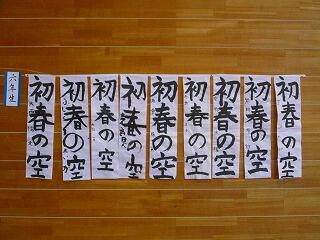 六年生
初春の空
初春の空
初春の空
初春の空
初春の空
初春の空
初春の空
初春の空
初春の空